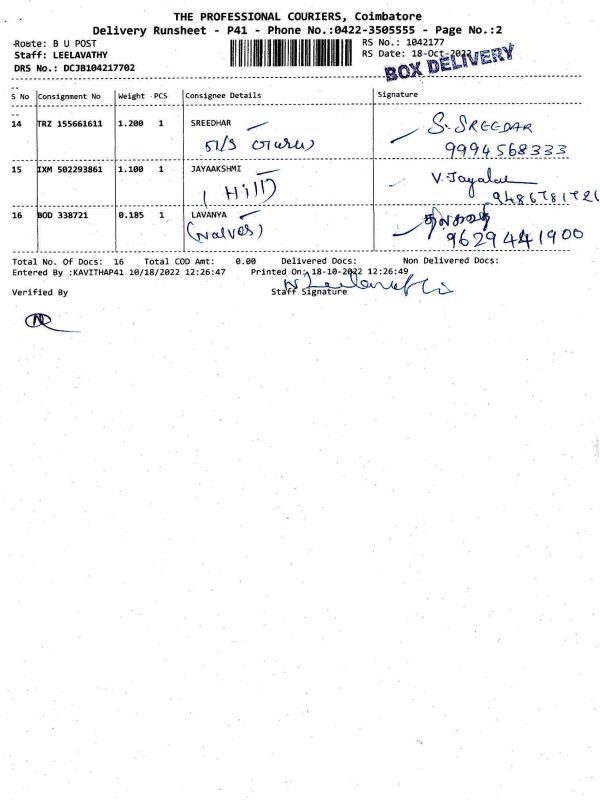 THE PROFESSIONAL COURIERS, Coimbatore
Delivery Runsheet - P41 - Phone No.:0422-3505555 - Page No.:2
Route: B U POST
RS No.: 1042177
Staff: LEELAVATHY
RS Date: 18-Oct-2022
DRS No.: DCJB104217702
BOX DELIVERY
S No Consignment No Weight PCS Consignee Details Signature
14 TRZ 155661611 1.200 1 SREEDHAR S. SREEDAR
9994568333
15 IXM 502293861 1.100 1 JAYAAKSHMI V. Jayalae
(Hill)
16 BOD 338721 0.185 1 LAVANYA
(Nalves) 9629441900
Total No. Of Docs: 16 Total COD Amt: 0.00 Delivered Docs: Non Delivered Docs:
Entered By :KAVITHAP41 10/18/2022 12:26:47 Printed On: 18-10-2022 12:26:49
Verified By Staff Signature